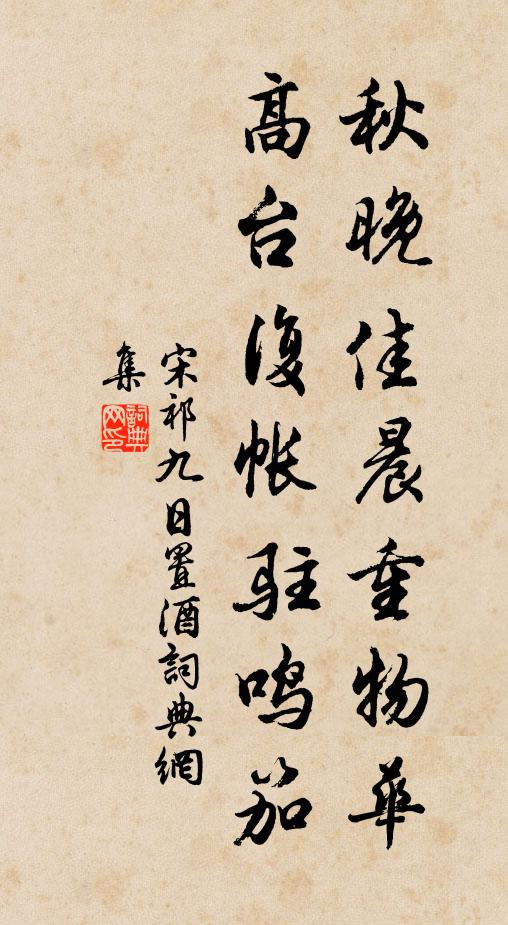 秋晚佳晨重物華
高台復帐駐鸣笳
宋祁九日置酒詞典網
集
詞典
网印